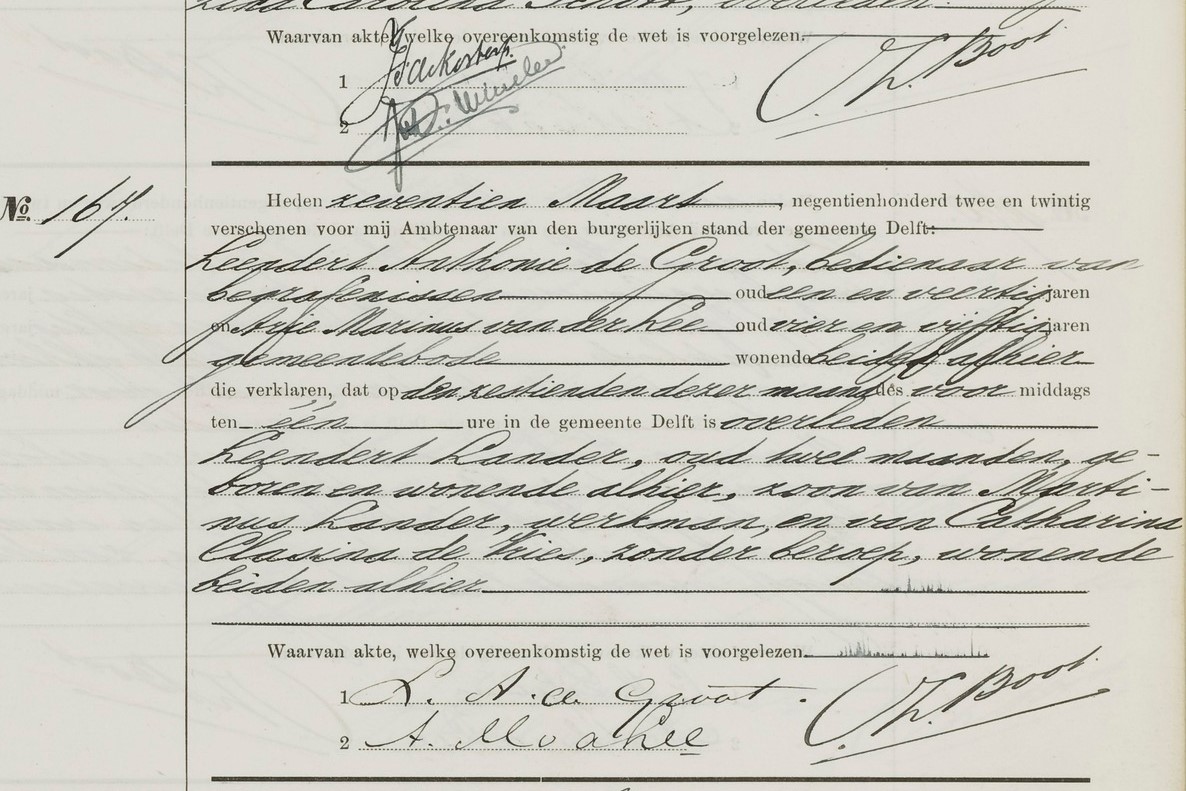 Lina Carolina Schott, overleden.
Waarvan akte, welke overeenkomstig de wet is voorgelezen.
1
Th. Boot
2
No. 167.
Heden zeventien Maart, negentienhonderd twee en twintig
verschenen voor mij Ambtenaar van den burgerlijken stand der gemeente Delft:
Leendert Anthonie de Groot, bedienaar van
begrafenissen oud een en veertig jaren
en Arie Marinus van der Lee oud vier en vijftig jaren
gemeentebode wonende beiden alhier
die verklaren, dat op den zestienden dezer maand des voor middags
ten één ure in de gemeente Delft is overleden
Leendert Lander, oud twee maanden, ge-
boren en wonende alhier, zoon van Marti-
nus Lander, werkman, en van Catharina
Clasina de Vries, zonder beroep, wonende
beiden alhier.
Waarvan akte, welke overeenkomstig de wet is voorgelezen.
1 L. A. de Groot.
Th. Boot.
2 A. M v d Lee